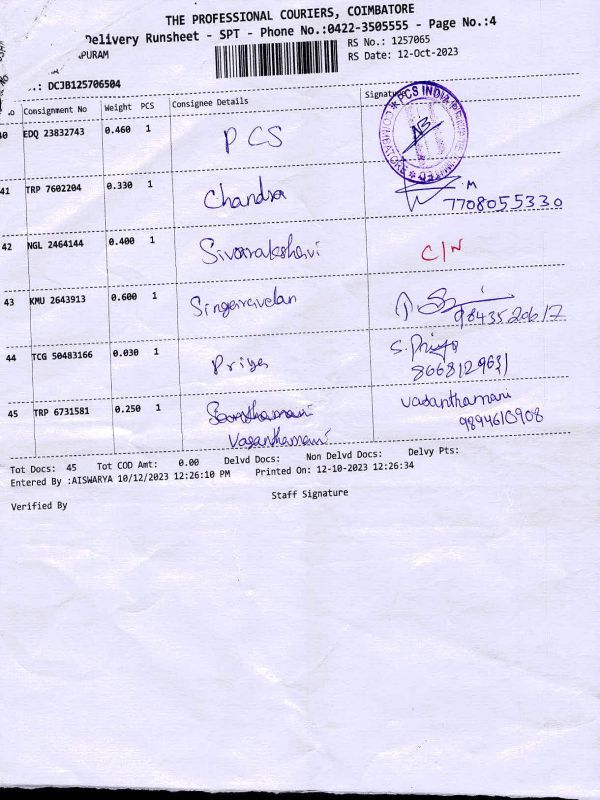 THE PROFESSIONAL COURIERS, COIMBATORE
Delivery Runsheet - SPT - Phone No.:0422-3505555 - Page No.:4
PURAM
RS No.: 1257065
RS Date: 12-Oct-2023
.: DCJB125706504
Consignment No Weight PCS Consignee Details Signature
40 EDQ 23832743 0.460 1 PCS
PCS INDIA PRIVATE LIMITED * COIMBATORE *
41 TRP 7602204 0.330 1 Chandra M
7708055330
42 NGL 2464144 0.400 1 Sivarakshavi C/N
43 KMU 2643913 0.600 1 Singaravelan
9843520617
44 TCG 50483166 0.030 1 Priya S. Priya
8668129631
45 TRP 6731581 0.250 1 Vasanthamani
Vasanthamani
9894610908
Tot Docs: 45 Tot COD Amt: 0.00 Delvd Docs: Non Delvd Docs: Delvy Pts:
Entered By :AISWARYA 10/12/2023 12:26:10 PM Printed On: 12-10-2023 12:26:34
Staff Signature
Verified By